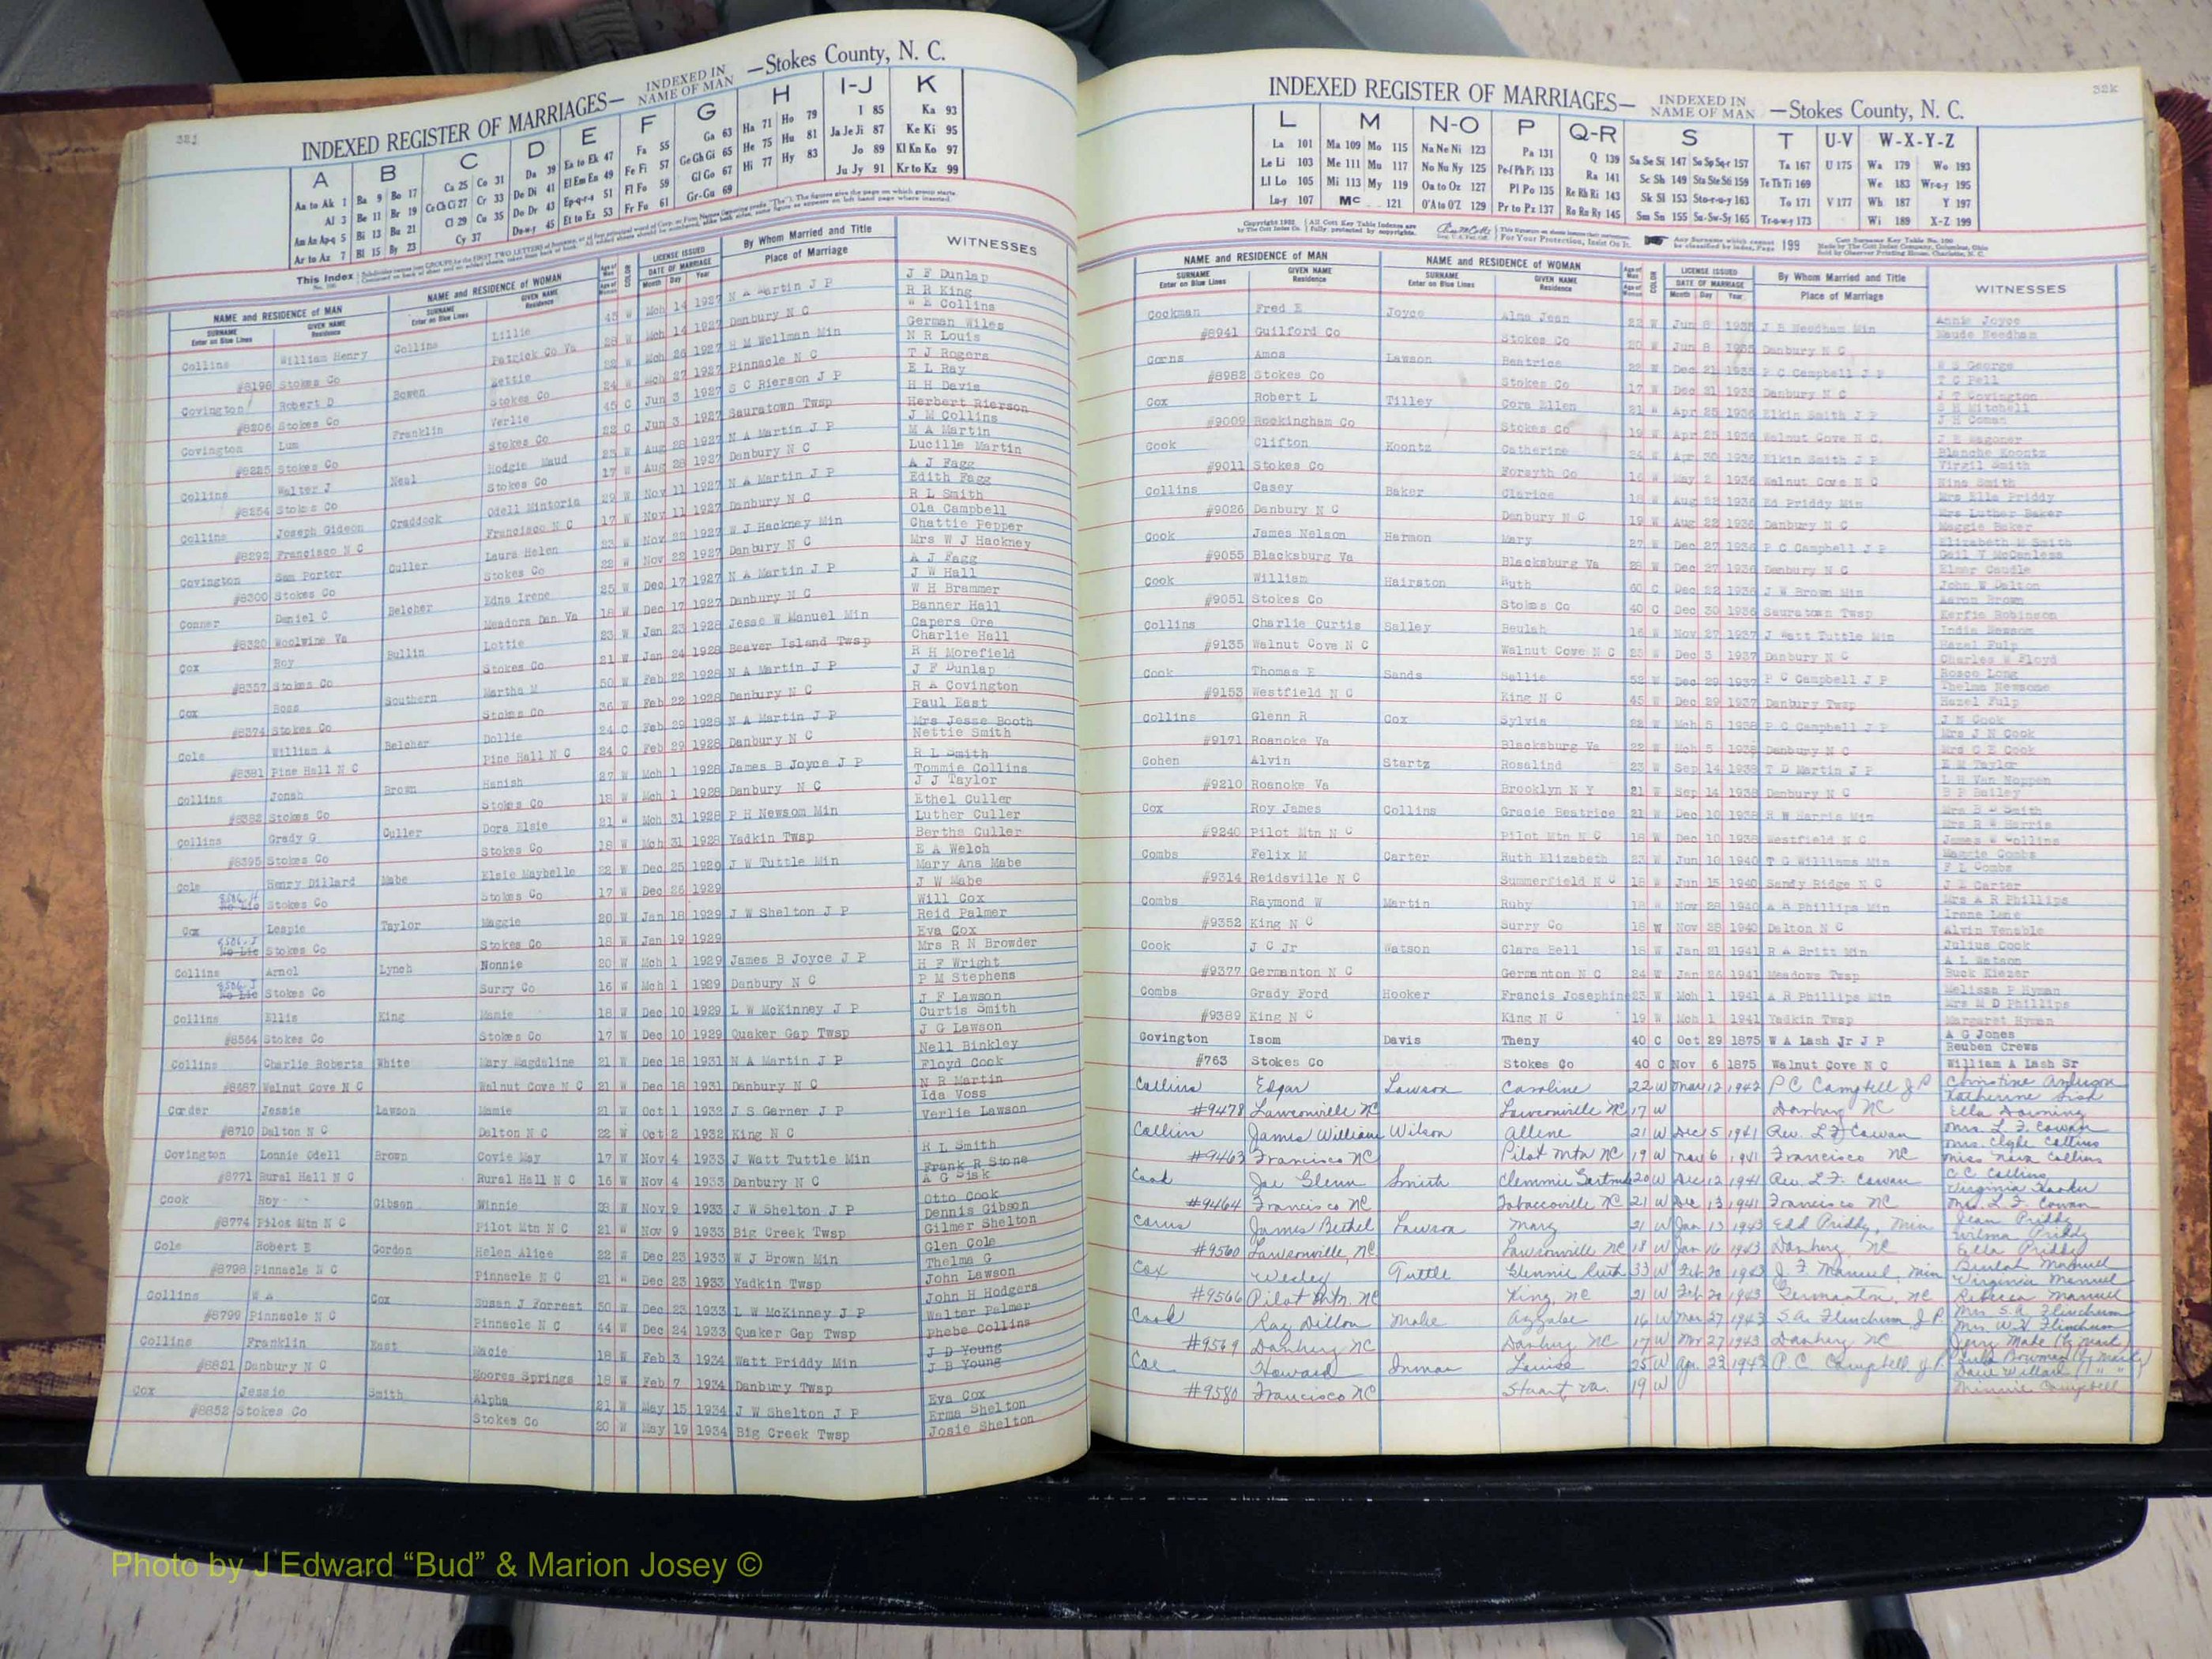 32j
INDEXED REGISTER OF MARRIAGES— INDEXED IN NAME OF MAN —Stokes County, N. C.
A B C D E F G H I-J K
Aa to Ak 1 Ba 9 Bo 17 Ca 25 Co 31 Da 39 Ea to Ek 47 Fa 55 Ga 63 Ha 71 Ho 79 I 85 Ka 93
Al 3 Be 11 Br 19 Ce Ch Ci 27 Cr 33 De Di 41 El Em En 49 Fe Fi 57 Ge Gh Gi 65 He 75 Hu 81 Ja Je Ji 87 Ke Ki 95
Am An Ap-q 5 Bi 13 Bu 21 Cl 29 Cu 35 Do Dr 43 Ep-q-r-s 51 Fl Fo 59 Gl Go 67 Hi 77 Hy 83 Jo 89 Kl Kn Ko 97
Ar to Az 7 Bl 15 By 23 Cy 37 Du-w-y 45 Et to Ez 53 Fr Fu 61 Gr-Gu 69 Ju Jy 91 Kr to Kz 99
NAME and RESIDENCE OF MAN NAME and RESIDENCE OF WOMAN LICENSE ISSUED By Whom Married and Title WITNESSES
SURNAME Enter on Blue Lines GIVEN NAME Residence SURNAME Enter on Blue Lines GIVEN NAME Residence DATE OF MARRIAGE Month Day Year Place of Marriage
Collins William Henry Collins Lillie 45 W Mch 14 1927 N A Martin J P J F Dunlap
R R King
#8196 Stokes Co Patrick Co Va 28 W Mch 14 1927 Danbury N C W E Collins
Covington Robert D Bowen Lettie 22 W Mch 26 1927 H M Wellman Min German Wiles
N R Louis
#8206 Stokes Co Stokes Co 24 W Mch 27 1927 Pinnacle N C T J Rogers
Covington Lum Franklin Verlie 45 C Jun 3 1927 S C Rierson J P E L Ray
H H Davis
#8225 Stokes Co Stokes Co 22 C Jun 3 1927 Sauratown Twsp Herbert Rierson
Collins Walter J Neal Hodgie Maud 25 W Aug 28 1927 N A Martin J P J M Collins
M A Martin
#8254 Stokes Co Stokes Co 17 W Aug 28 1927 Danbury N C Lucille Martin
Collins Joseph Gideon Craddock Odell Mintoria 29 W Nov 11 1927 N A Martin J P A J Fagg
Edith Fagg
#8292 Francisco N C Francisco N C 17 W Nov 11 1927 Danbury N C R L Smith
Covington Sam Porter Culler Laura Helen 23 W Nov 22 1927 W J Hackney Min Ola Campbell
Chattie Pepper
#8300 Stokes Co Stokes Co 22 W Nov 22 1927 Danbury N C Mrs W J Hackney
Conner Daniel C Belcher Edna Irene 25 W Dec 17 1927 N A Martin J P A J Fagg
J W Hall
#8320 Woolwine Va Meadors Dan Va 18 W Dec 17 1927 Danbury N C W H Brammer
Cox Roy Bullin Lottie 23 W Jan 23 1928 Jesse W Manuel Min Banner Hall
Capers Ore
#8357 Stokes Co Stokes Co 21 W Jan 24 1928 Beaver Island Twsp Charlie Hall
Cox Boss Southern Martha M 50 W Feb 22 1928 N A Martin J P R H Morefield
J F Dunlap
#8374 Stokes Co Stokes Co 36 W Feb 22 1928 Danbury N C R A Covington
Cole William A Belcher Dollie 24 C Feb 29 1928 N A Martin J P Paul East
Mrs Jesse Booth
#8381 Pine Hall N C Pine Hall N C 24 C Feb 29 1928 Danbury N C Nettie Smith
Collins Jonah Brown Hanish 27 W Mch 1 1928 James B Joyce J P R L Smith
Tommie Collins
#8382 Stokes Co Stokes Co 18 W Mch 1 1928 Danbury N C J J Taylor
Collins Grady G Culler Dora Elsie 21 W Mch 31 1928 P H Newsom Min Ethel Culler
Luther Culler
#8395 Stokes Co Stokes Co 18 W Mch 31 1928 Yadkin Twsp Bertha Culler
Cole Henry Dillard Mabe Elsie Maybelle 22 W Dec 25 1929 J W Tuttle Min E A Welch
Mary Ana Mabe
No Lic Stokes Co Stokes Co 17 W Dec 26 1929 J W Mabe
Cox Leapie Taylor Maggie 20 W Jan 18 1929 J W Shelton J P Will Cox
Reid Palmer
No Lic Stokes Co Stokes Co 18 W Jan 19 1929 Eva Cox
Collins Arnol Lynch Nonnie 20 W Mch 1 1929 James B Joyce J P Mrs R N Browder
H F Wright
No Lic Stokes Co Surry Co 16 W Mch 1 1929 Danbury N C P M Stephens
Collins Ellis King Mamie 18 W Dec 10 1929 L W McKinney J P J F Lawson
Curtis Smith
#8564 Stokes Co Stokes Co 17 W Dec 10 1929 Quaker Gap Twsp J G Lawson
Collins Charlie Roberts White Mary Magdaline 21 W Dec 18 1931 N A Martin J P Nell Binkley
Floyd Cook
#8687 Walnut Cove N C Walnut Cove N C 21 W Dec 18 1931 Danbury N C N R Martin
Corder Jessie Lawson Mamie 21 W Oct 1 1932 J S Garner J P Ida Voss
Verlie Lawson
#8710 Dalton N C Dalton N C 22 W Oct 2 1932 King N C
Covington Lonnie Odell Brown Covie May 17 W Nov 4 1933 J Watt Tuttle Min R L Smith
Frank R Stone
#8771 Rural Hall N C Rural Hall N C 16 W Nov 4 1933 Danbury N C A G Sisk
Cook Roy Gibson Winnie 28 W Nov 9 1933 J W Shelton J P Otto Cook
Dennis Gibson
#8774 Pilot Mtn N C Pilot Mtn N C 21 W Nov 9 1933 Big Creek Twsp Gilmer Shelton
Cole Robert E Gordon Helen Alice 22 W Dec 23 1933 W J Brown Min Glen Cole
Thelma G
#8798 Pinnacle N C Pinnacle N C 21 W Dec 23 1933 Yadkin Twsp John Lawson
Collins W A Cox Susan J Forrest 50 W Dec 23 1933 L W McKinney J P John H Hodgers
Walter Palmer
#8799 Pinnacle N C Pinnacle N C 44 W Dec 24 1933 Quaker Gap Twsp Phebe Collins
Collins Franklin East Macie 18 W Feb 3 1934 Watt Priddy Min J D Young
J B Young
#8821 Danbury N C Moores Springs 18 W Feb 7 1934 Danbury Twsp
Cox Jessie Smith Alpha 21 W May 15 1934 J W Shelton J P Eva Cox
Erma Shelton
#8852 Stokes Co Stokes Co 20 W May 19 1934 Big Creek Twsp Josie Shelton
32k
INDEXED REGISTER OF MARRIAGES— INDEXED IN NAME OF MAN —Stokes County, N. C.
L M N-O P Q-R S T U-V W-X-Y-Z
La 101 Ma 109 Mo 115 Na Ne Ni 123 Pa 131 Q 139 Sa Se Si 147 So Sp Sq-r 157 Ta 167 U 175 Wa 179 Wo 193
Le Li 103 Me 111 Mu 117 No Nu Ny 125 Pe-f Ph Pi 133 Ra 141 Sc Sh 149 Sta Ste Sti 159 Te Th Ti 169 We 183 Wr-u-y 195
Ll Lo 105 Mi 113 My 119 Oa to Oz 127 Pl Po 135 Re Rh Ri 143 Sk Sl 153 Sto-r-u-y 163 To 171 V 177 Wh 187 Y 197
Lu-y 107 Mc 121 O'A to O'Z 129 Pr to Pz 137 Ro Ru Ry 145 Sm Sn 155 Su-Sw-Sy 165 Tr-u-w-y 173 Wi 189 X-Z 199
NAME and RESIDENCE OF MAN NAME and RESIDENCE OF WOMAN LICENSE ISSUED By Whom Married and Title WITNESSES
SURNAME Enter on Blue Lines GIVEN NAME Residence SURNAME Enter on Blue Lines GIVEN NAME Residence DATE OF MARRIAGE Month Day Year Place of Marriage
Cockman Fred E Joyce Alma Jean 22 W Jun 8 1935 J B Needham Min Annie Joyce
Maude Needham
#8941 Guilford Co Stokes Co 20 W Jun 8 1935 Danbury N C
Corns Amos Lawson Beatrice 22 W Dec 21 1935 P C Campbell J P W S George
T C Pell
#8982 Stokes Co Stokes Co 17 W Dec 21 1935 Danbury N C J T Covington
Cox Robert L Tilley Cora Ellen 21 W Apr 25 1936 Elkin Smith J P S H Mitchell
J H Coman
#9009 Rockingham Co Stokes Co 19 W Apr 25 1936 Walnut Cove N C. J E Wagoner
Cook Clifton Koontz Catherine 24 W Apr 30 1936 Elkin Smith J P Blanche Koontz
Virgil Smith
#9011 Stokes Co Forsyth Co 16 W May 2 1936 Walnut Cove N C Nina Smith
Collins Casey Baker Clarice 18 W Aug 22 1936 Ed Priddy Min Mrs Ella Priddy
Mrs Luther Baker
#9026 Danbury N C Danbury N C 19 W Aug 22 1936 Danbury N C Maggie Baker
Cook James Nelson Harmon Mary 27 W Dec 27 1936 P C Campbell J P Elizabeth M Smith
Gail V McCanless
#9055 Blacksburg Va Blacksburg Va 28 W Dec 27 1936 Danbury N C Elmer Caudle
Cook William Hairston Ruth 60 C Dec 22 1936 J W Brown Min John W Dalton
Aaron Brown
#9051 Stokes Co Stokes Co 40 C Dec 30 1936 Sauratown Twsp Kerfie Robinson
Collins Charlie Curtis Salley Beulah 16 W Nov 27 1937 J Watt Tuttle Min India Newsom
Hazel Fulp
#9135 Walnut Cove N C Walnut Cove N C W Dec 3 1937 Danbury N C Charles W Floyd
Cook Thomas E Sands Sallie 52 W Dec 29 1937 P C Campbell J P Rosco Long
Thelma Newsome
#9153 Westfield N C King N C 45 W Dec 29 1937 Danbury Twsp Hazel Fulp
Collins Glenn R Cox Sylvia 22 W Mch 5 1938 P C Campbell J P J N Cook
Mrs J N Cook
#9171 Roanoke Va Blacksburg Va 22 W Mch 5 1938 Danbury N C Mrs C E Cook
Cohen Alvin Startz Rosalind 23 W Sep 14 1938 T D Martin J P E M Taylor
L H Van Noppen
#9210 Roanoke Va Brooklyn N Y 21 W Sep 14 1938 Danbury N C B P Bailey
Cox Roy James Collins Gracie Beatrice 21 W Dec 10 1938 R W Harris Min Mrs B Smith
Mrs R W Harris
#9240 Pilot Mtn N C Pilot Mtn N C 18 W Dec 10 1938 Westfield N C James W Collins
Combs Felix M Carter Ruth Elizabeth 23 W Jun 10 1940 T G Williams Min Maggie Combs
F L Combs
#9314 Reidsville N C Summerfield N C 18 W Jun 15 1940 Sandy Ridge N C J E Carter
Combs Raymond W Martin Ruby 18 W Nov 28 1940 A R Phillips Min Mrs A R Phillips
Irene Lane
#9352 King N C Surry Co 18 W Nov 28 1940 Dalton N C Alvin Venable
Cook J C Jr Watson Clara Bell 18 W Jan 21 1941 R A Britt Min Julius Cook
A L Watson
#9377 Germanton N C Germanton N C 24 W Jan 26 1941 Meadows Twsp Buck Kiezer
Combs Grady Ford Hooker Francis Josephine 23 W Mch 1 1941 A R Phillips Min Melissa P Hyman
Mrs M D Phillips
#9389 King N C King N C 19 W Mch 1 1941 Yadkin Twsp Margaret Hyman
Covington Isom Davis Theny 40 C Oct 29 1875 W A Lash Jr J P A G Jones
Reuben Crews
#763 Stokes Co Stokes Co 40 C Nov 6 1875 Walnut Cove N C William A Lash Sr
Collins Edgar Lawson Caroline 22 W Mar 12 1942 P C Campbell J P Christine Anderson
Katherine Sisk
#9478 Lawsonville NC Lawsonville NC 17 W Danbury NC Ella Downing
Collins James William Wilson Allene 21 W Dec 5 1941 Rev. L F Cowan Mrs. L. F. Cowan
Mrs. Clyde Collins
#9463 Francisco NC Pilot Mtn NC 19 W 6 1941 Francisco NC Miss Nova Collins
Cook Joe Glenn Smith Clemmie Gertrude 20 W Dec 12 1941 Rev. L. F. Cowan C C Collins
Virginia
#9464 Francisco NC Tobaccoville NC 21 W Dec 13 1941 Francisco NC Mrs. L. F. Cowan
Corns James Bethel Lawson Mary 21 W Jan 13 1943 Edd Priddy, Min Jean Priddy
Wilma Priddy
#9560 Lawsonville, NC Lawsonville NC 18 W Jan 16 1943 Danbury, NC Ella Priddy
Cox Wesley Tuttle Glennie Ruth 33 W Feb 20 1943 J. F. Manuel, Min Beulah Manuel
Virginia Manuel
#9566 Pilot Mtn. NC King, NC 21 W Feb 20 1943 Germanton, NC Rebecca Manuel
Cook Ray Dillon Mabe Azzalee 16 W Mar 27 1943 S.A. Flinchum J.P. Mrs. S.A. Flinchum
Mrs. W.H. Flinchum
#9569 Danbury NC Danbury NC 17 W Mr 27 1943 Danbury NC Jerry Mabe (by mark)
Coe Howard Inman Louise 25 W Apr. 23 1943 P.C. Campbell J.P. Lula Bowman (by mark)
Willard
#9580 Francisco NC Stuart Va. 19 W Minnie Campbell
Photo by J Edward “Bud” & Marion Josey ©